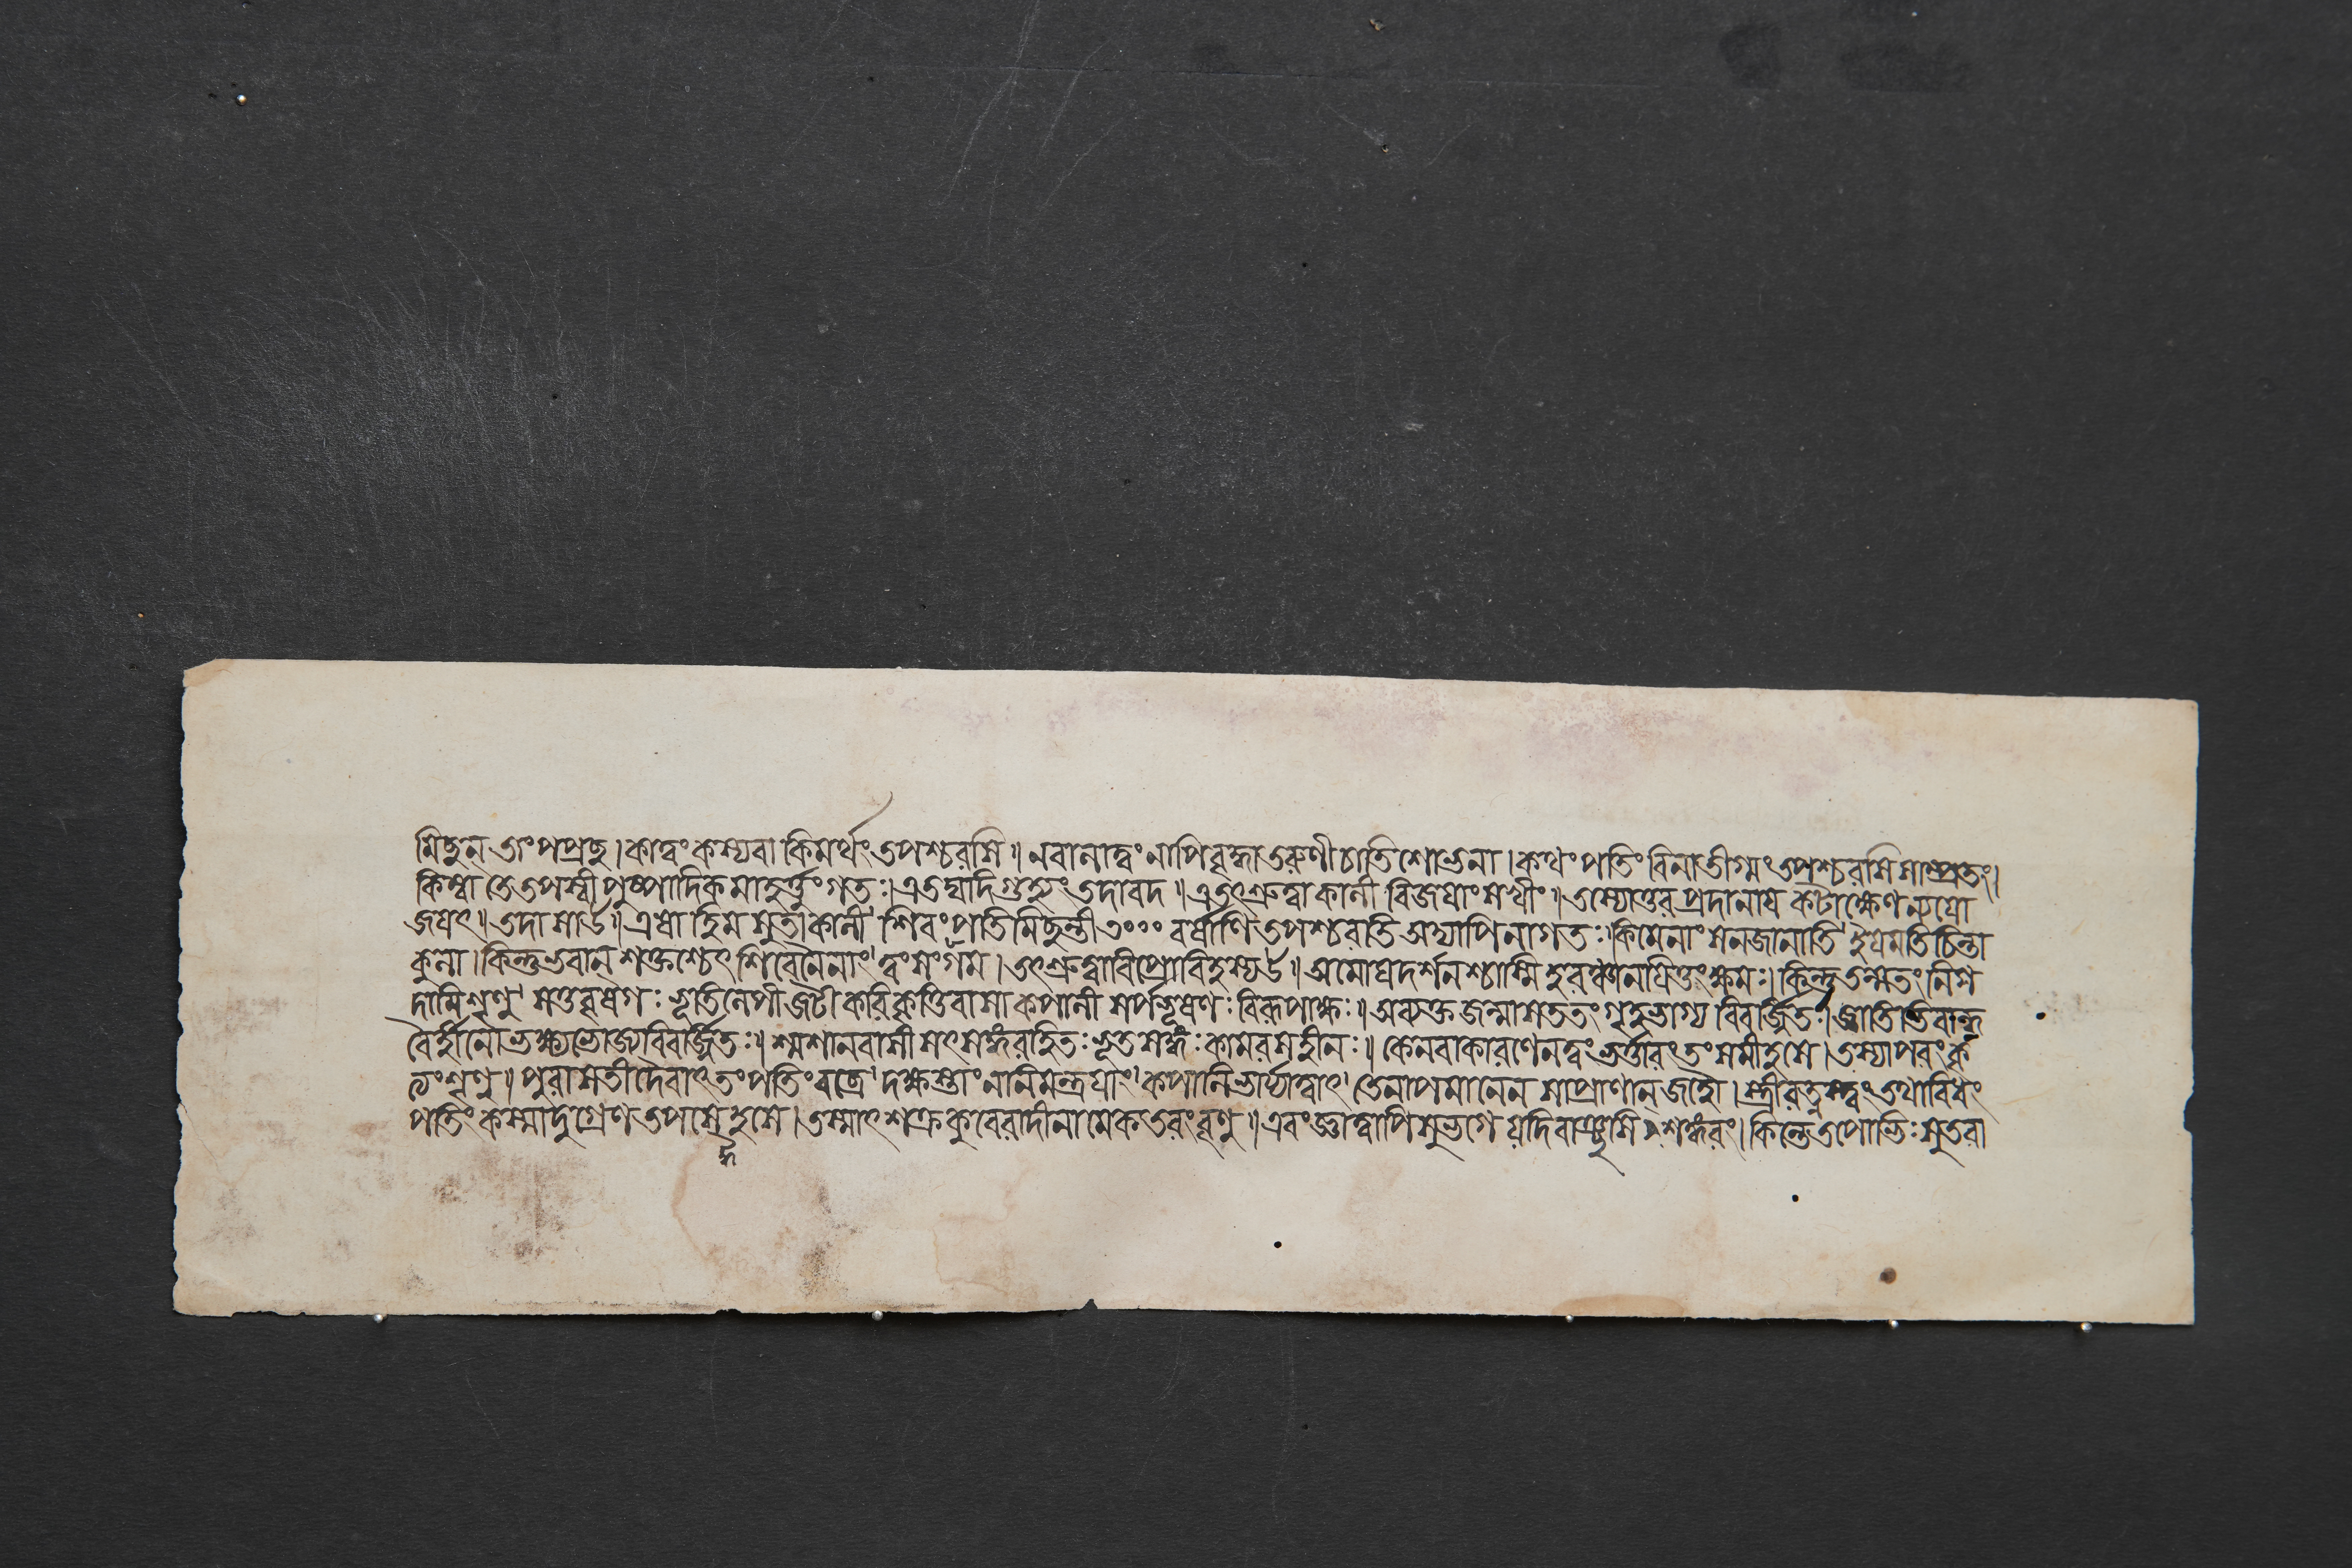 মিছুন্ জংপপ্রছ । কাত্বং কস্যবা কিমর্থং তপশ্চরসি ॥ নবানাত্বং নাপিবৃদ্ধা তরুণী চাতিশোভনা । কথং পতিং বিনা তীগ্মং তপশ্চরসি সাম্প্রতং ।
কিম্বা তে তপস্বী পুষ্পাদিকমাহর্ত্তুং গতঃ । এতদ্যদি গুহ্যং তদাবদ ॥ এতৎশ্রুত্বা কালী বিজয়াং সখীং ॥ তস্যোত্তর প্রদানায় কটাক্ষেণ ন্যয়ো
জয়ৎ ॥ তদা সাহ ॥ এষা হিমসুতা কালী শিবং পতিমিছন্তী ৩০০০ বর্ষাণি তপশ্চরতি অদ্যাপি নাগতঃ । কিমেনাং সেনজানাতি চিন্তা
কুলা । কিন্তু ভবান্ শক্তশ্চেৎ শিবেনৈনাং ত্বং সংগম । তৎশ্রুত্বাবিপ্রোবিহস্যাহ ॥ অমোঘদর্শনশ্চাস্মি হরঞ্চানয়িতুং ক্ষমঃ । কিন্তু তন্মতং নিগ
দামি শৃণু বৃষগঃ ভূতিলেপী জটী করিকৃত্তিবাসা কপালী সর্পভূষণঃ বিরূপাক্ষঃ ॥ অব্যক্তজন্মা সততং গৃহভাগ্য বিবর্জ্জিতঃ । জ্ঞাতিভির্বান্ধ
বৈর্হীনো ভক্ষ্যভোজ্যবিবর্জ্জিতঃ ॥ শ্মশানবাসী সৎসঙ্গরহিতঃ ভূতসঙ্গঃ কামরসহীনঃ ॥ কেনবাকারণেনত্বং ভর্ত্তারং তং সমীহসে । তস্যাপরং কৃ
ত্যং শৃণু ॥ পুরা সতী দেবাৎ তং পতিং বব্রে দক্ষস্তাং নানিমন্ত্রয়াং কপালিভার্য্যাত্বাৎ তেনাপমানেন সাপ্রাণান্ জহৌ । স্ত্রীরত্নস্ত্বং তথাবিধং
পতিং কস্মাদুগ্রেণ তপসেহসে । তস্মাৎ শক্রকুবেরাদীনামেকতরং বৃণু ॥ এবং জ্ঞাত্বাপি সুভগে যদিবাঞ্ছসি শঙ্করং । কিন্তে তপোভিঃ সুতরা